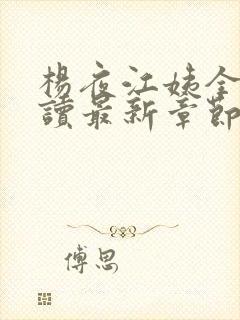 楊夜江姨全
讀最新章節
傅思